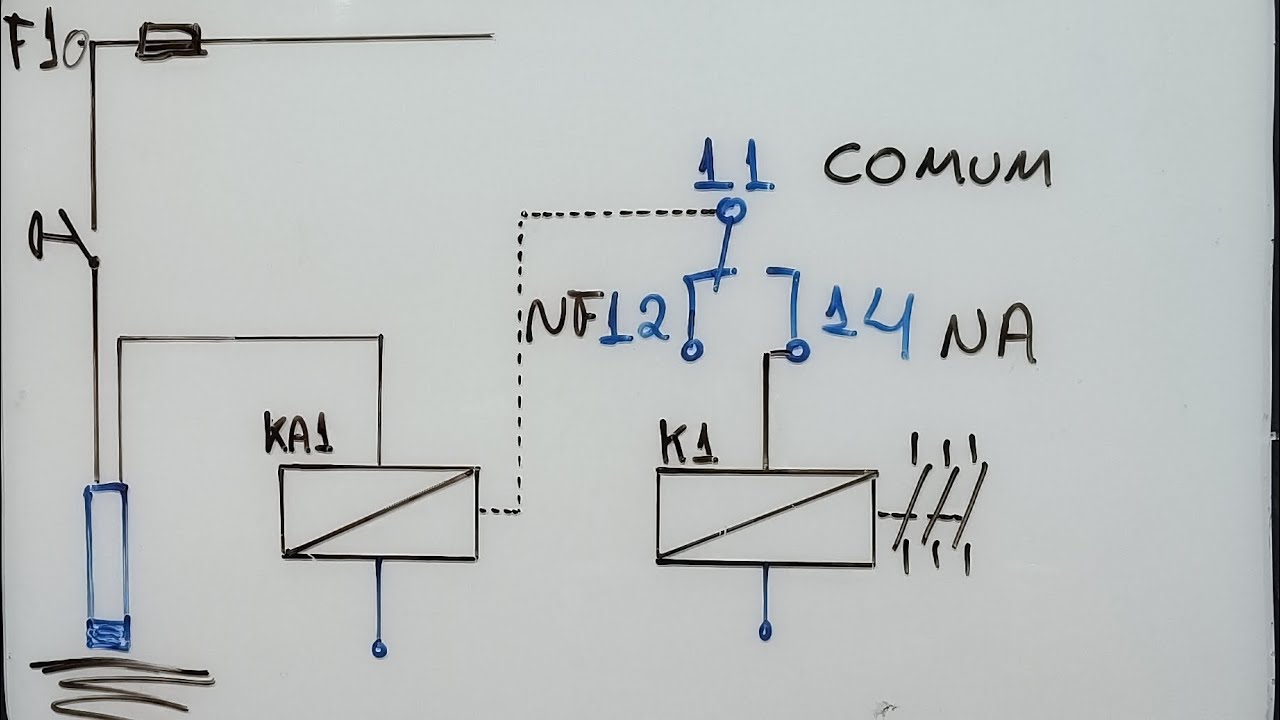 F1
11 COMUM
NF 12
14 NA
KA1
K1